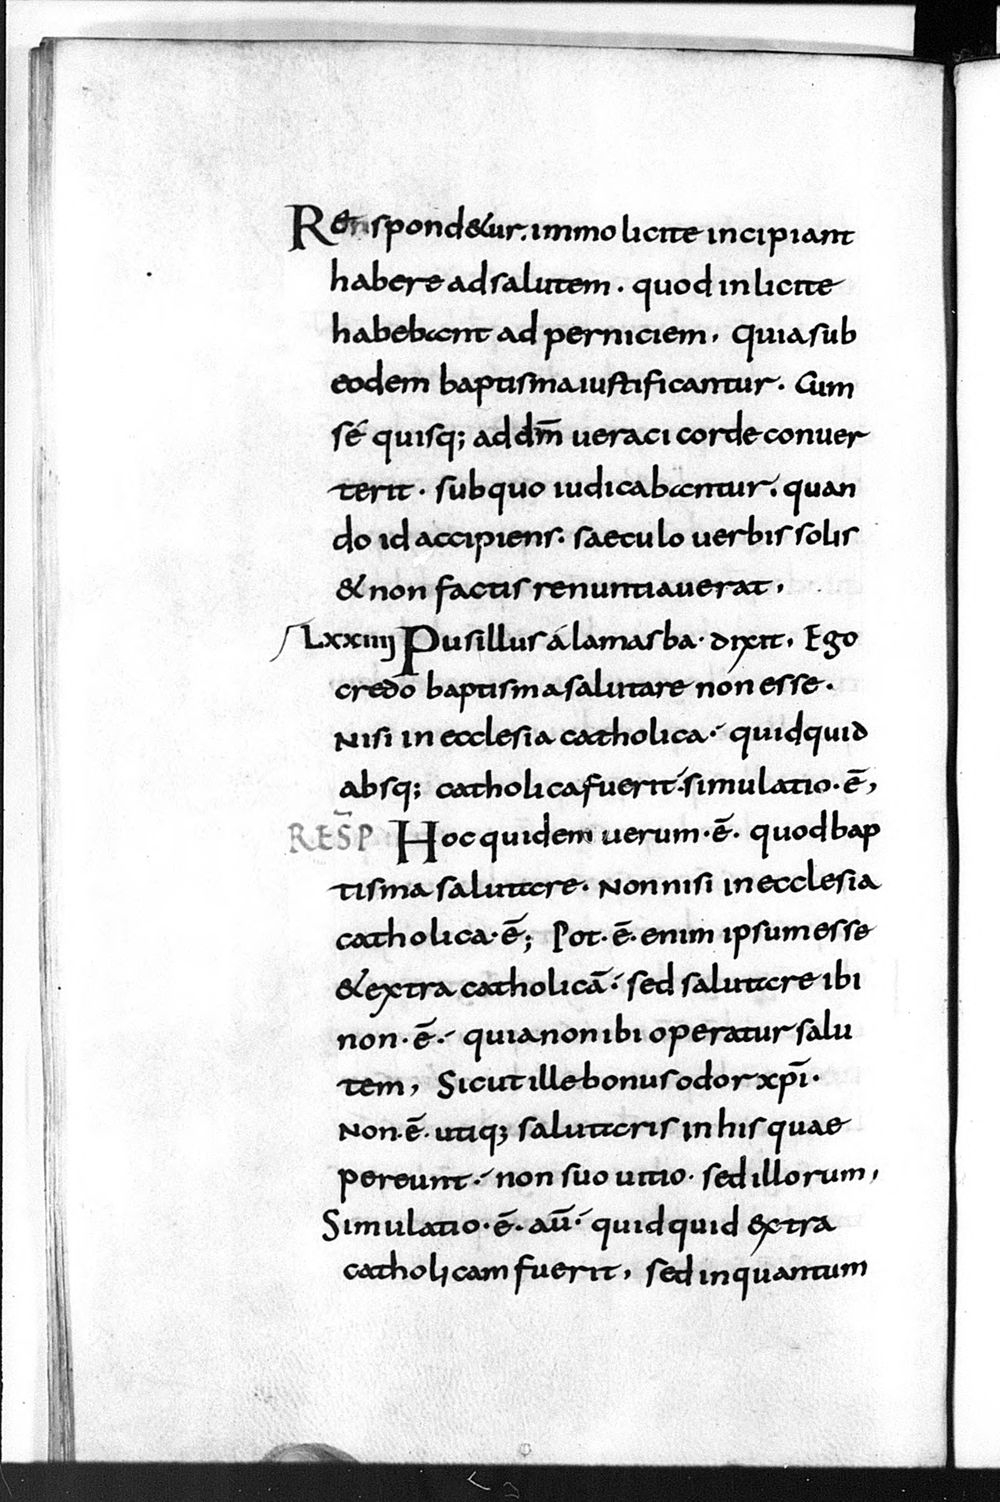 Respond&ur. immo licite incipiant
habere ad salutem. quod inlicite
habebant ad perniciem, quia sub
eodem baptisma iustificantur. Cum
sé quisq; ad dm̄ ueraci corde conuer
terit. sub quo iudicabantur. quan
do id accipiens. saeculo uerbis solis
& non factis renuntiauerat,
LXXIIIJ Pusillus á lamasba. dixit, Ego
credo baptisma salutare non esse.
Nisi in ecclesia catholica. quidquid
absq; catholica fuerit. simulatio. ē,
RESP̄ Hoc quidem uerum. ē. quod bap
tisma salutare. Non nisi in ecclesia
catholica. ē; Pot. ē. enim ipsum esse
& extra catholicā. sed salutare ibi
non. ē. quia non ibi operatur salu
tem, Sicut ille bonus odor xpī.
Non. ē. utiq; salutaris in his quae
pereunt. non suo uitio. sed illorum,
Simulatio. ē. aū. quidquid extra
catholicam fuerit, sed inquantum